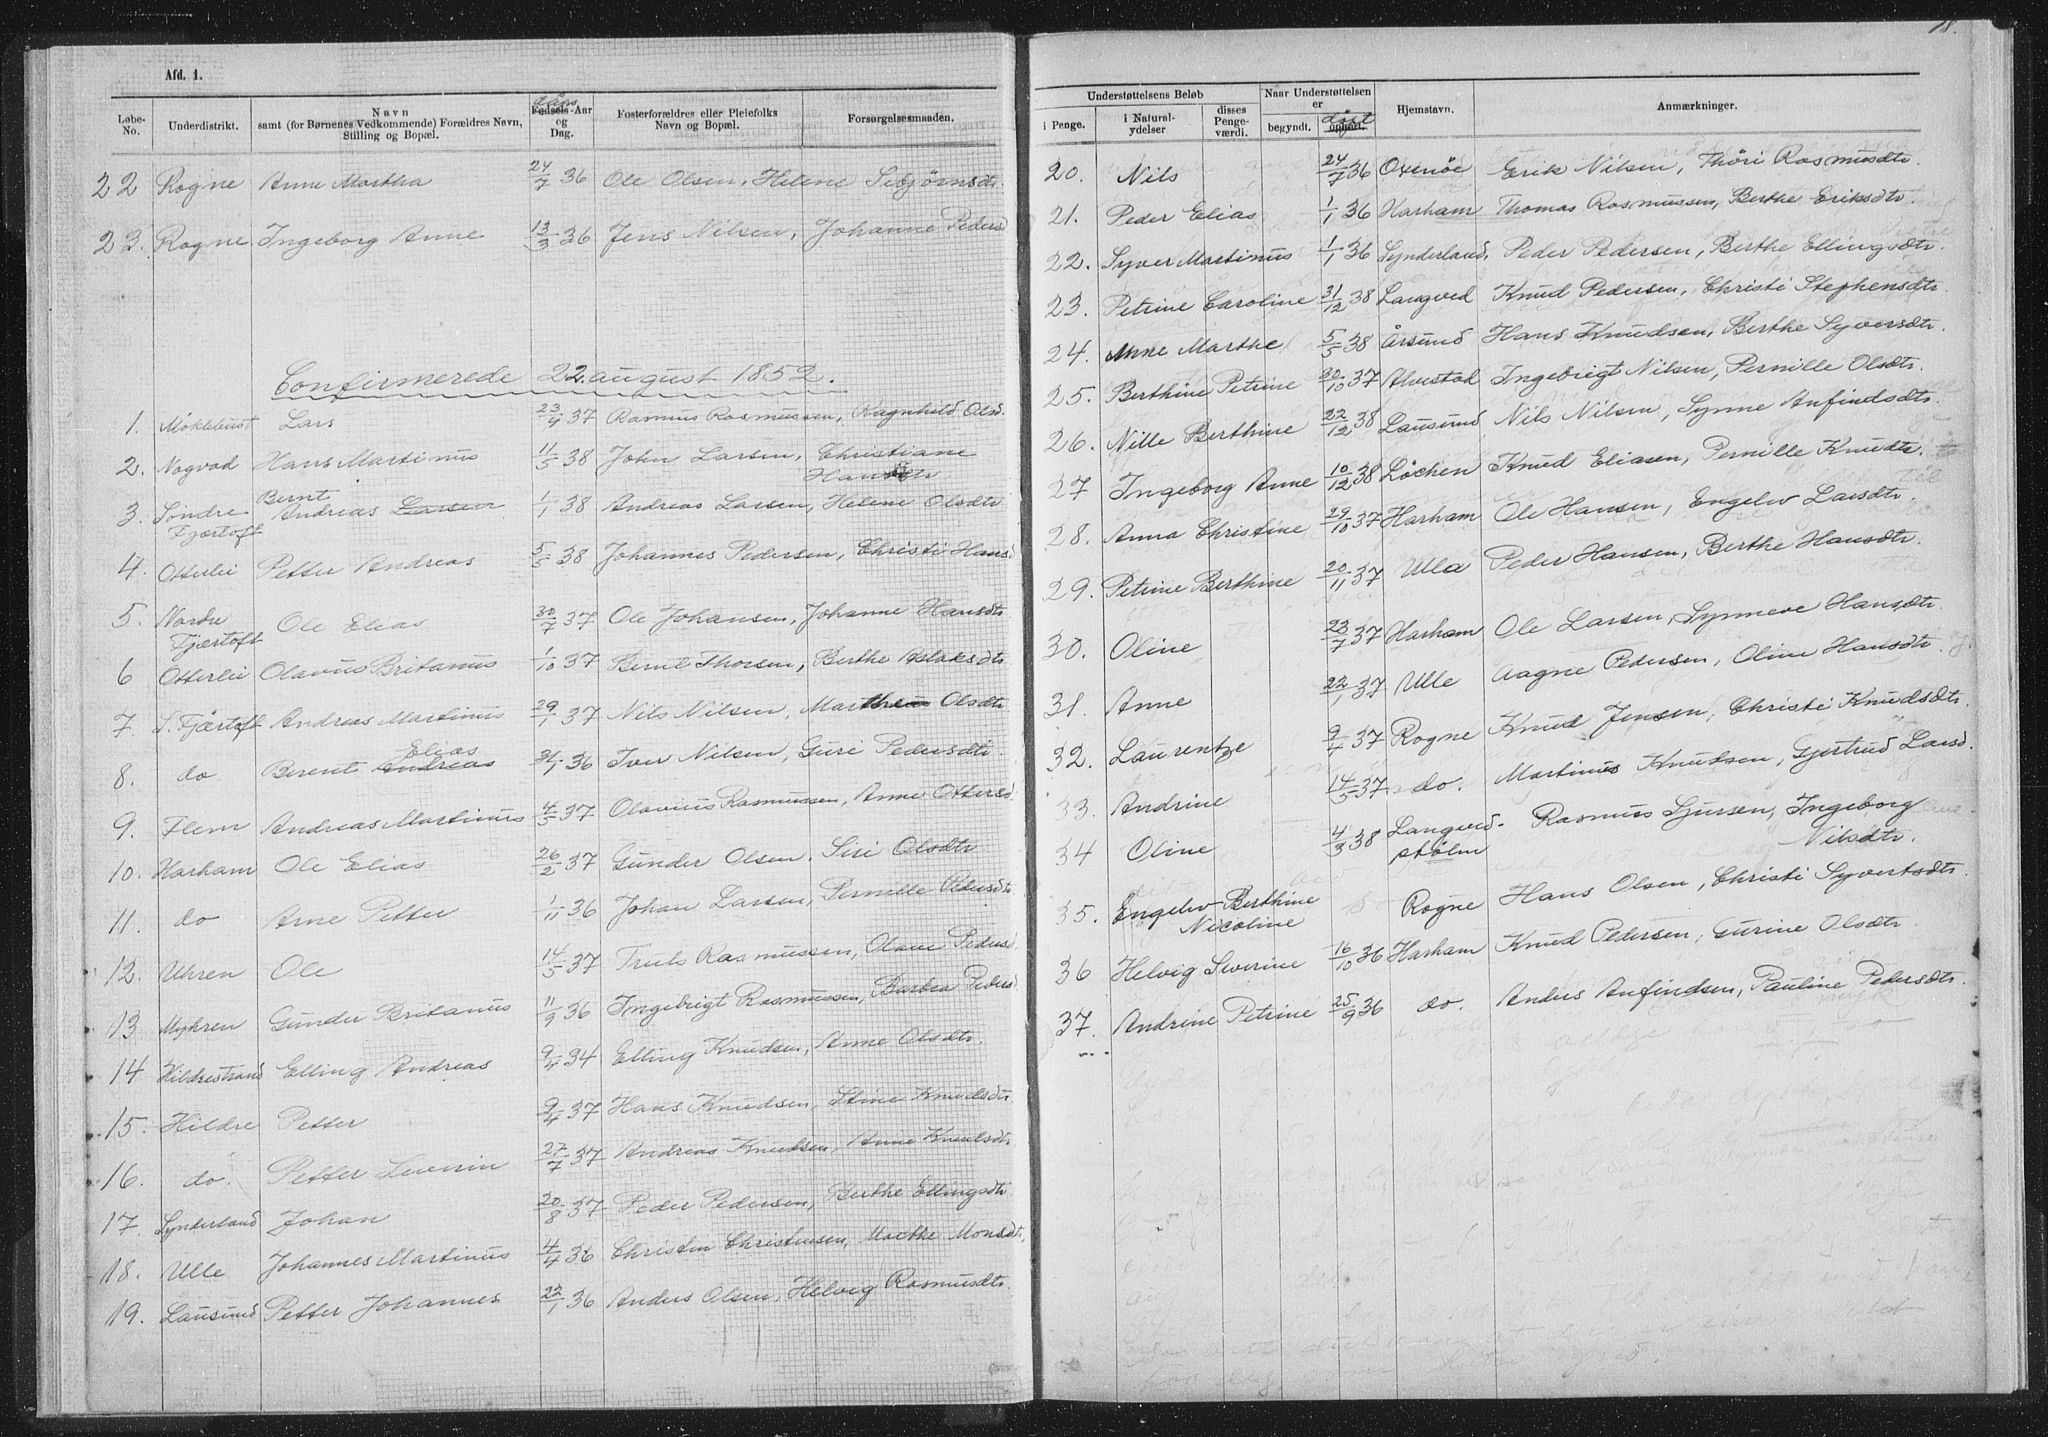 Afd. 1.
Løbe-No. Underdistrikt. Navn samt (for Børnenes Vedkommende) Forældres Navn, Stilling og Bopæl. dåbs Fødsels-Aar og Dag. Fosterforældres eller Pleiefolks Navn og Bopæl. Forsørgelsesmaaden.
22 Rogne Anne Martha 24/7 36 Ole Olsen, Helene Sebjørnsdtr.
23. Rogne Ingeborg Anne 13/3 36 Jens Nilsen, Johanne Pedersd
Confirmerede 22. august 1852.
1. Møklebust Lars 23/4 37 Rasmus Rasmussen, Ragnhild Olsd.
2. Nogvad Hans Martinus 11/5 38 John Larsen, Christiane
Hansdtr
Bernt
3. Søndre Andreas Larsen 1/1 38 Andreas Larsen, Helene Olsdtr
Fjærtoft
4. Otterlei Petter Andreas 5/5 38 Johannes Pedersen, Christi Hansd
5. Nordre Ole Elias 30/7 37 Ole Johansen, Johanne Hansdtr
Fjærtoft
6 Otterlei Olavus Britanus 1/10 37 Bernt Thorsen, Berthe Aslaksdtr
7. S. Fjærtoft Andreas Martinus 29/1 37 Nils Nilsen, Marthe Olsdtr
Elias
8. do Berent Andreas 31/1 36 Iver Nilsen, Guri Pedersdtr.
9. Flem Andreas Martinus 4/5 37 Olavius Rasmussen, Anne Ottersd.
10. Harham Ole Elias 26/2 37 Gunder Olsen, Siri Olsdtr
11. do Arne Petter 1/11 36 Johan Larsen, Pernille Pedersdtr
12. Uhren Ole 14/5 37 Truls Rasmussen, Olave Pedersd.
13 Myhren Gunder Britanus 11/9 36 Ingebrigt Rasmussen, Barbra Peders
14 Hildrestrand Elling Andreas 9/4 34 Elling Knudsen, Anne Olsdtr.
15. Hildre Petter 9/4 37 Hans Knudsen, Stine Knudsdtr
16. do. Petter Severin 27/7 37 Andreas Knudsen, Anne Knudsdtr
17. Synderland Johan 20/8 37 Peder Pedersen, Berthe Ellingsdtr
18. Ulle Johannes Martinus 4/4 36 Christen Christensen, Marthe Monsdtr,
19. Lausund Petter Johannes 22/1 36 Anders Olsen, Helvig Rasmusdtr.
18.
Understøttelsens Beløb Naar Understøttelsen er Hjemstavn. Anmærkninger.
i Penge. i Natural-ydelser disses Penge-værdi. begyndt. ophørt. døpt
20. Nils 24/7 36 Oxenøe Erik Nilsen, Thöri Rasmusdtr.
21. Peder Elias 1/1 36 Harham Thomas Rasmussen, Berthe Eriksdtr.
22. Syver Martinus 1/1 36 Synderland, Peder Pedersen, Berthe Ellingsdtr.
23. Petrine Caroline 31/12 38 Langved Knud Pedersen, Christi Stephensdtr.
24. Anne Marthe 5/5 38 Årsund Hans Knudsen, Berthe Syversdtr.
25. Berthine Petrine 30/10 37 Alvestad Ingebrigt Nilsen, Pernille Olsdtr.
26. Nille Berthine 22/12 38 Lausund Nils Nilsen, Synne Anfindsdtr.
27 Ingeborg Anne 10/12 38 Löchen Knud Eliasen, Pernille Knudtr.
28. Anna Christine 29/10 37 Harham Ole Hansen, Engelev Larsdtr.
29. Petrine Berthine 20/11 37 Ulla Peder Hansen, Berthe Hansdtr.
30. Oline 23/7 37 Harham Ole Larsen, Synneve Hansdtr.
31. Anne 22/1 37 Ulle Aagne Pedersen, Oline Hansdtr.
32. Laurentze 9/4 37 Rogne Knud Jensen, Christi Knudsdtr.
33. Andrine 14/5 37 do. Martinus Knudsen, Gjertrud Larsd.
34 Oline 4/3 38 Langved- Rasmus Sjursen, Ingeborg
stølm Nilsdtr.
35. Engelev Berthine Rogne Hans Olsen, Christi Syvertsdtr.
Nicoline
36 Helvig Severine 16/10 36 Harham Knud Pedersen, Gurine Olsdtr.
37. Andrine Petrine 25/9 36 do. Anders Anfindsen, Pauline Pedersdtr.